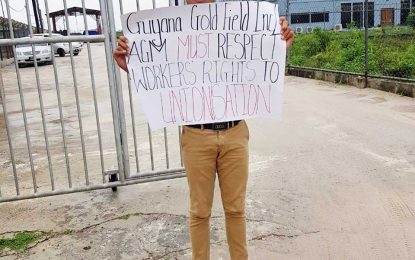 Guyana Gold Field Inc
AGM MUST RESPECT
WORKERS RIGHTS TO
UNIONSATION